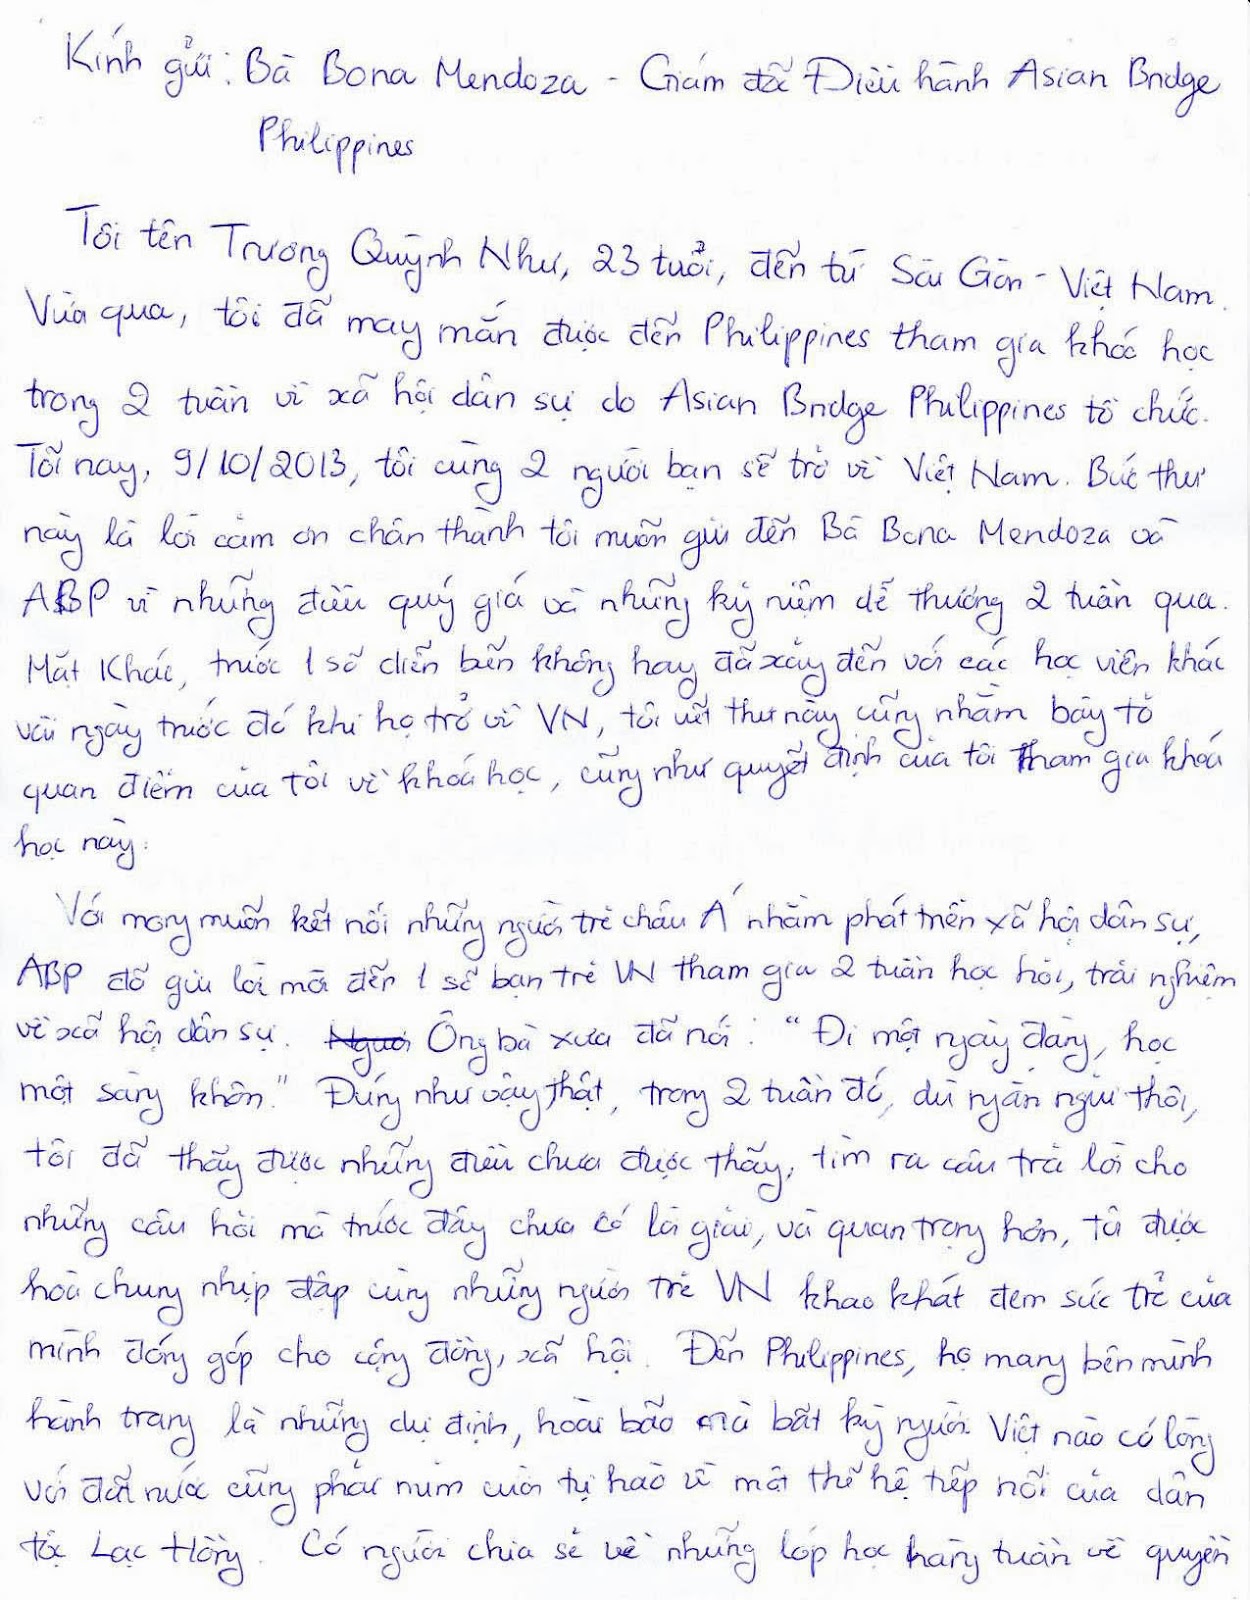 Kính gửi: Bà Bona Mendoza - Giám đốc Điều hành Asian Bridge
Philippines
Tôi tên Trương Quỳnh Như, 23 tuổi, đến từ Sài Gòn - Việt Nam.
Vừa qua, tôi đã may mắn được đến Philippines tham gia khóa học
trong 2 tuần về xã hội dân sự do Asian Bridge Philippines tổ chức.
Tối nay, 9/10/2013, tôi cùng 2 người bạn sẽ trở về Việt Nam. Bức thư
này là lời cảm ơn chân thành tôi muốn gửi đến Bà Bona Mendoza và
ABP vì những điều quý giá và những kỷ niệm dễ thương 2 tuần qua.
Mặt khác, trước 1 số diễn biến không hay đã xảy đến với các học viên khác
vài ngày trước đó khi họ trở về VN, tôi viết thư này cũng nhằm bày tỏ
quan điểm của tôi về khoá học, cũng như quyết định của tôi tham gia khoá
học này.
Với mong muốn kết nối những người trẻ châu Á nhằm phát triển xã hội dân sự,
ABP đã gửi lời mời đến 1 số bạn trẻ VN tham gia 2 tuần học hỏi, trải nghiệm
về xã hội dân sự. Người Ông bà xưa đã nói: "Đi một ngày đàng, học
một sàng khôn." Đúng như vậy thật, trong 2 tuần đó, dù ngắn ngủi thôi,
tôi đã thấy được những điều chưa được thấy, tìm ra câu trả lời cho
những câu hỏi mà trước đây chưa có lời giải, và quan trọng hơn, tôi được
hoà chung nhịp đập cùng những người trẻ VN khao khát đem sức trẻ của
mình đóng góp cho cộng đồng, xã hội. Đến Philippines, họ mang bên mình
hành trang là những dự định, hoài bão mà bất kỳ người Việt nào có lòng
với đất nước cũng phải mỉm cười tự hào về một thế hệ tiếp nối của dân
tộc Lạc Hồng. Có người chia sẻ về những lớp học hàng tuần về quyền